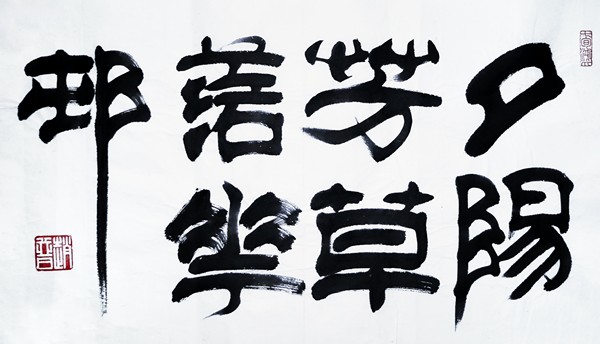 夕陽
芳草
落花
邨